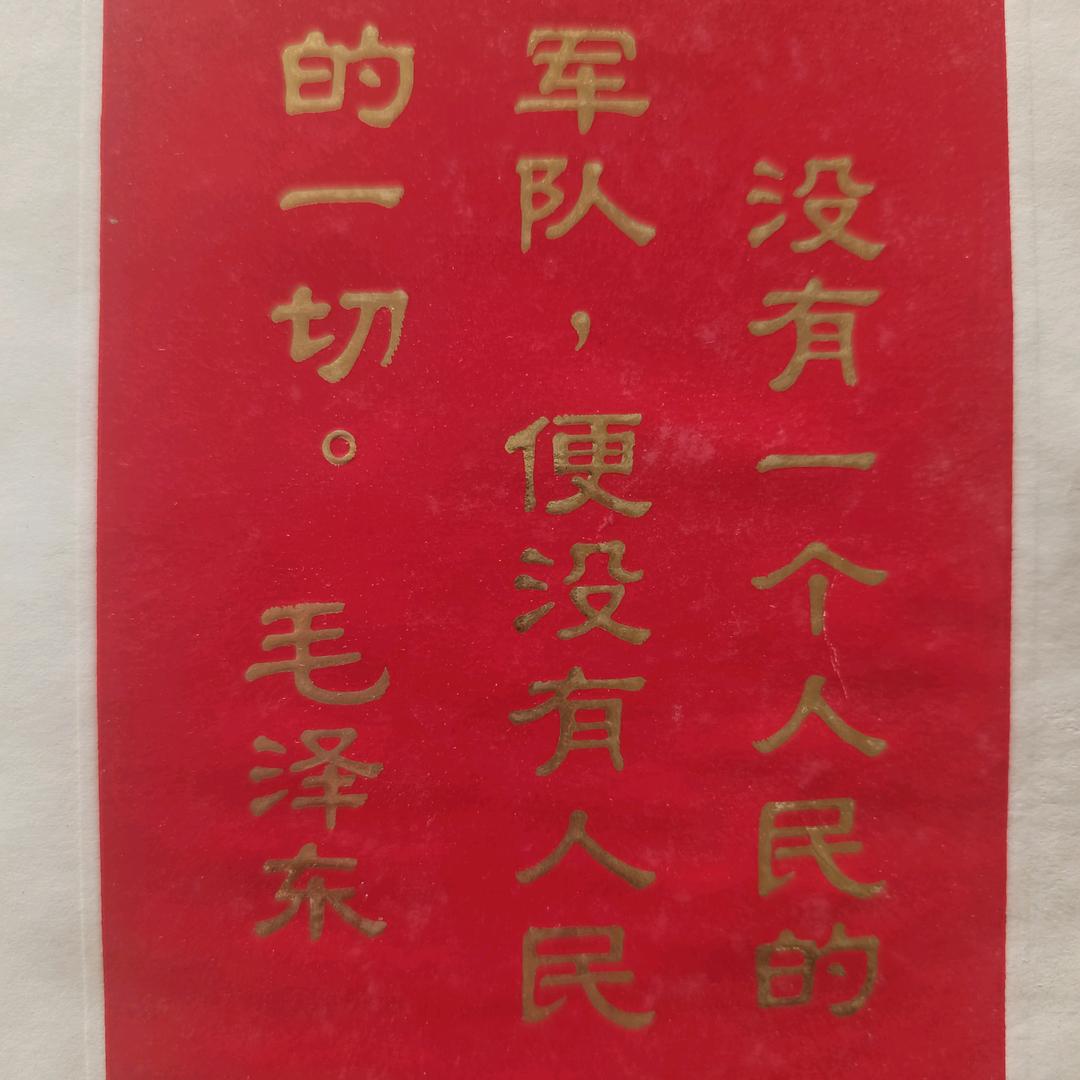 没有一个人民的
军队，便没有人民
的一切。 毛泽东